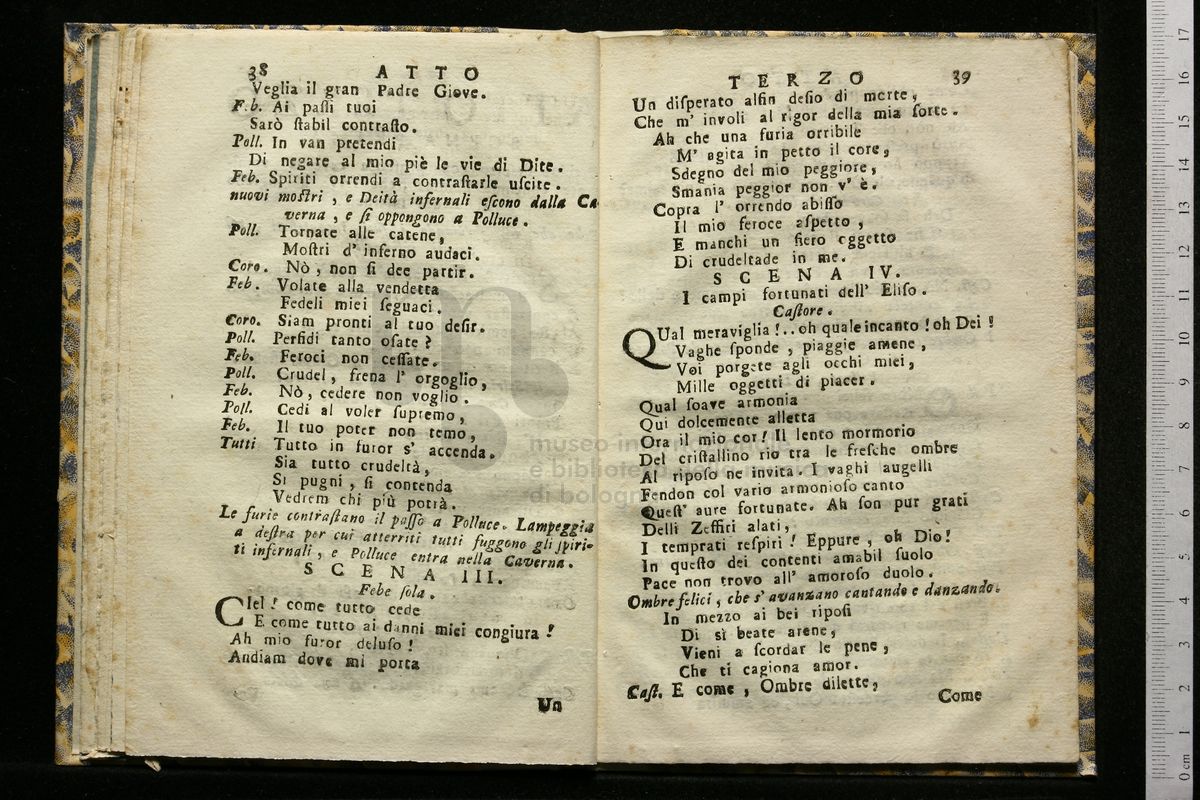 38 ATTO
Veglia il gran Padre Giove.
Feb. Ai paſſi tuoi
Sarò ſtabil contraſto.
Poll. In van pretendi
Di negare al mio piè le vie di Dite.
Feb. Spiriti orrendi a contraſtarle uſcite.
nuovi moſtri, e Deità infernali eſcono dalla Ca
verna, e ſi oppongono a Polluce.
Poll. Tornate alle catene,
Moſtri d' inferno audaci.
Coro. Nò, non ſi dee partir.
Feb. Volate alla vendetta
Fedeli miei ſeguaci.
Coro. Siam pronti al tuo deſir.
Poll. Perfidi tanto oſate?
Feb. Feroci non ceſſate.
Poll. Crudel, frena l' orgoglio,
Feb. Nò, cedere non voglio.
Poll. Cedi al voler ſupremo,
Feb. Il tuo poter non temo,
Tutti Tutto in furor s' accenda.
Sia tutto crudeltà,
Si pugni, ſi contenda
Vedrem chi più potrà.
Le furie contraſtano il paſſo a Polluce. Lampeggia
a deſtra per cui atterriti tutti fuggono gli ſpiri-
ti infernali, e Polluce entra nella Caverna.
SCENA III.
Febe ſola.
CIel! come tutto cede
E come tutto ai danni miei congiura!
Ah mio furor deluſo!
Andiam dove mi porta
Un
TERZO 39
Un diſperato alfin deſio di morte,
Che m' involi al rigor della mia ſorte.
Ah che una furia orribile
M' agita in petto il core,
Sdegno del mio peggiore,
Smania peggior non v' è.
Copra l' orrendo abiſſo
Il mio feroce aſpetto,
E manchi un fiero oggetto
Di crudeltade in me.
SCENA IV.
I campi fortunati dell' Eliſo.
Caſtore.
QUal meraviglia!.. oh quale incanto! oh Dei!
Vaghe ſponde, piaggie amene,
Voi porgete agli occhi miei,
Mille oggetti di piacer.
Qual ſoave armonia
Qui dolcemente alletta
Ora il mio cor! Il lento mormorio
Del criſtallino rio tra le freſche ombre
Al ripoſo ne invita. I vaghi augelli
Fendon col vario armonioſo canto
Queſt' aure fortunate. Ah ſon pur grati
Delli Zeffiri alati,
I temprati reſpiri! Eppure, oh Dio!
In queſto dei contenti amabil ſuolo
Pace non trovo all' amoroſo duolo.
Ombre felici, che s' avanzano cantando e danzando.
In mezzo ai bei ripoſi
Di sì beate arene,
Vieni a ſcordar le pene,
Che ti cagiona amor.
Caſt. E come, Ombre dilette,
Come